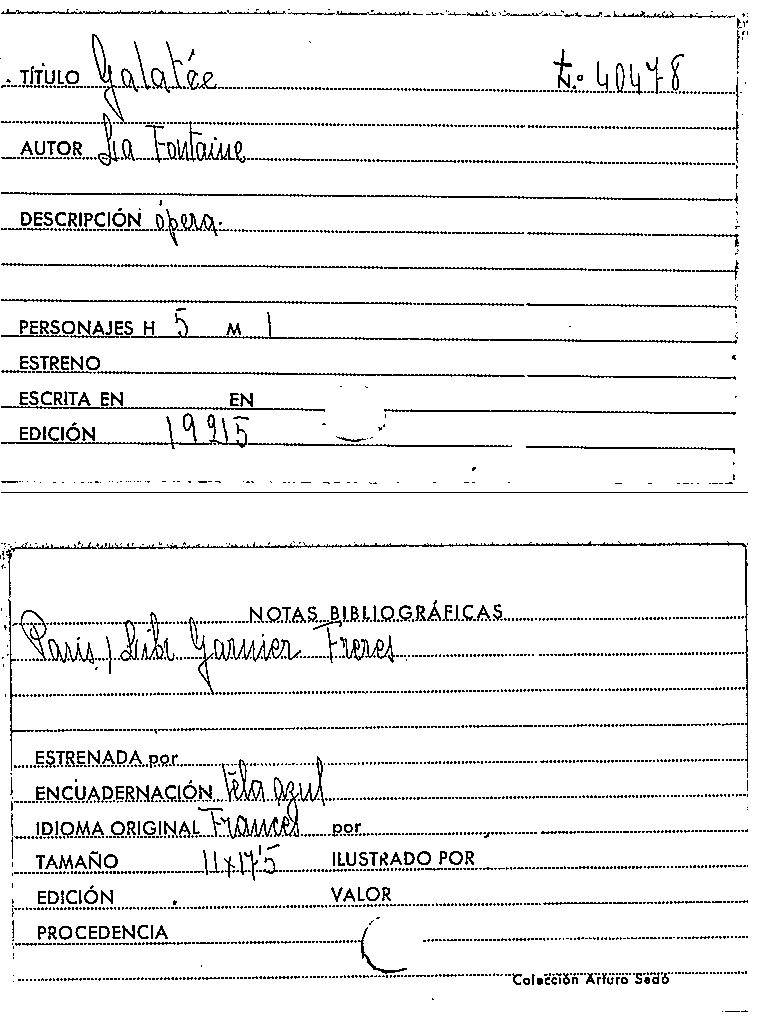 TÍTULO Galatée t.º 40478
AUTOR La Fontaine
DESCRIPCIÓN ópera.
PERSONAJES H 5 M 1
ESTRENO
ESCRITA EN EN
EDICIÓN
NOTAS BIBLIOGRÁFICAS
Paris / Libr Garnier Freres
ESTRENADA por
ENCUADERNACIÓN tela azul
IDIOMA ORIGINAL Frances por
TAMAÑO 11x17'5 ILUSTRADO POR
EDICIÓN VALOR
PROCEDENCIA
Colección Arturo Sedó